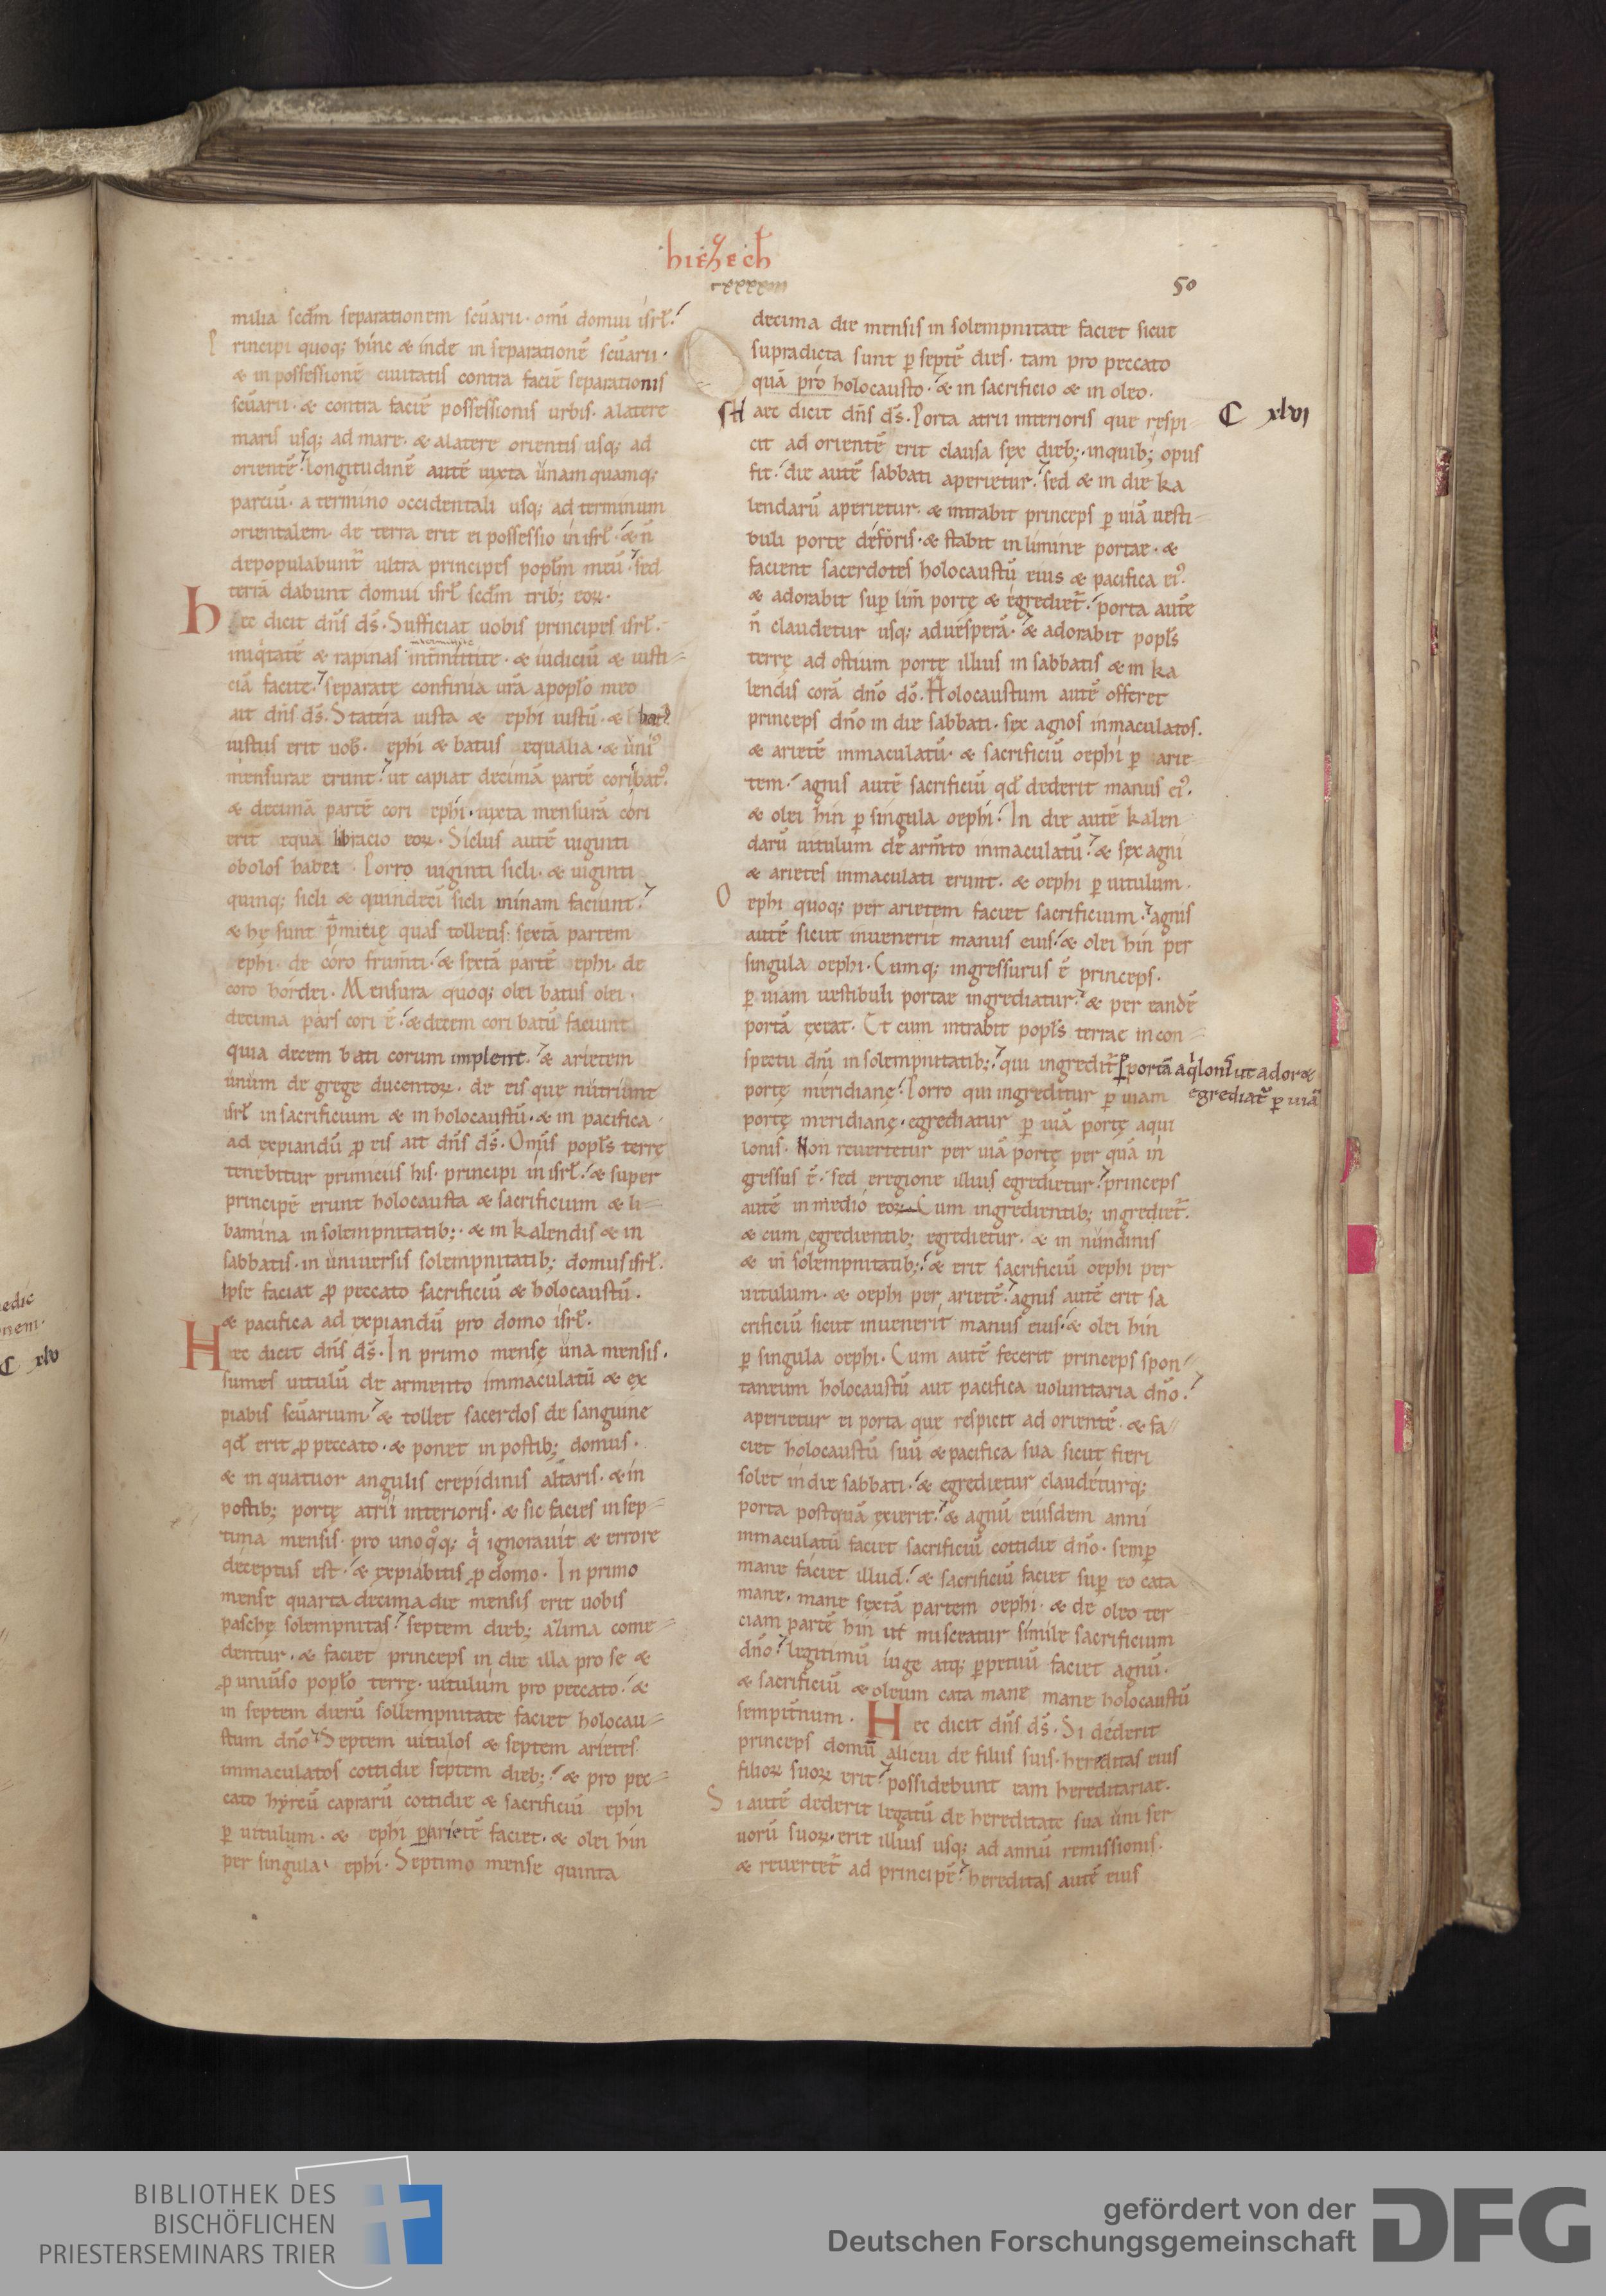 hiezech
50
milia scdm separationem scuarii · omi domui isrł
Principi quoq; hinc & inde in separationē scuarii ·
& in possessionē ciuitatis contra faciē separationis
scuarii · & contra faciē possessionis urbis · a latere
maris usq; ad mare · & a latere orientis usq; ad
orientē · longitudinē autē iuxta unam quamq;
partiū · a termino occidentali usq; ad terminum
orientalem · de terra erit ei possessio in isrł · & n̄
depopulabunt ultra principes poplm meū · sed
terrā dabunt domui isrł scdm trib; eoꝝ ·
Hec dicit dn̄s ds̄ · Sufficiat uobis principes isrł ·
iniqtatē & rapinas intmittite · & iudiciū & iusti
ciā facite · separate confinia urā a poplo meo
ait dn̄s ds̄ · Statera iusta & ephi iustū · & bat9
iustus erit uob · ephi & batus equalia · & uni9
mensurae erunt · ut capiat decimā partē cori bat9
& decimā partē cori ephi · iuxta mensurā cori
erit equa libracio eoꝝ · Siclus autē uiginti
obolos habet · Porro uiginti sicli · & uiginti
quinq; sicli & quindeci sicli minam faciunt ·
& hę sunt pmitię quas tolletis · sextā partem
ephi · de coro frumti · & sextā partē ephi · de
coro hordei · Mensura quoq; olei batus olei ·
decima pars cori ē · & decem cori batū faciunt
quia decem bati corum implent · & arietem
unum de grege ducentoꝝ · de eis que nutriunt
isrł in sacrificium & in holocaustū · & in pacifica ·
ad expiandū p eis ait dn̄s ds̄ · Omis popls terrę
tenebitur primiciis his · principi in isrł · & super
principē erunt holocausta & sacrificium & li
bamina in solempnitatib; · & in kalendis & in
sabbatis · in uniuersis solempnitatib; domus isrł ·
Ipse faciat p peccato sacrificiū & holocaustū ·
& pacifica ad expiandū pro domo isrł ·
Hec dicit dn̄s ds̄ · In primo mense una mensis ·
sumes uitulū de armento immaculatū & ex
piabis scuarium · & tollet sacerdos de sanguine
qd erit p peccato · & ponet in postib; domus ·
& in quatuor angulis crepidinis altaris · & in
postib; portę atrii interioris · & sic facies in sep
tima mensis · pro uno qq; q ignorauit & errore
deceptus est · & expiabitis p domo · In primo
mense quarta decima die mensis erit uobis
paschę solempnitas · septem dieb; azima come
dentur · & faciet princeps in die illa pro se &
p uniuso poplo terrę · uitulum pro peccato · &
in septem dierū sollempnitate faciet holocau
stum dno · Septem uitulos & septem arietes
immaculatos cottidie septem dieb; · & pro pec
cato hyrcū caprarū cottidie & sacrificiū ephi
p uitulum · & ephi p arietē faciet · & olei hin
per singula ephi · Septimo mense quinta
decima die mensis in solempnitate faciet sicut
supradicta sunt p septē dies · tam pro peccato
quā pro holocausto · & in sacrificio & in oleo ·
Haec dicit dn̄s ds̄ · Porta atrii interioris que respi
C xlvi
cit ad orientē erit clausa sex dieb; · in quib; opus
fit · die autē sabbati aperietur · sed & in die ka
lendarū aperietur · & intrabit princeps p uiā uesti
buli portę deforis · & stabit in limine portae · &
facient sacerdotes holocaustū eius & pacifica ei9 ·
& adorabit sup lim portę & egrediet · porta autē
n̄ claudetur usq; ad uesperā · & adorabit popls
terrę ad ostium portę illius in sabbatis & in ka
lendis corā dno do · Holocaustum autē offeret
princeps dno in die sabbati · sex agnos inmaculatos ·
& arietē inmaculatū · & sacrificiū oephi p arie
tem · agnis autē sacrificiū qd dederit manus ei9 ·
& olei hin p singula oephi · In die autē kalen
darū uitulum de armto inmaculatū · & sex agni
& arietes inmaculati erunt · & oephi p uitulum ·
Oephi quoq; per arietem faciet sacrificium · agnis
autē sicut inuenerit manus eius · & olei hin per
singula oephi · Cumq; ingressurus ē princeps ·
p uiam uestibuli portae ingrediatur · & per eandē
portā exeat · Et cum intrabit popls terrae in con
spectu dni in solempnitatib; · qui ingredit p portā aqlonis ut adoret
egrediat p uiā
portę meridianę · Porro qui ingreditur p uiam
portę meridianę · egrediatur p uiā portę aqui
lonis · Non reuertetur per uiā portę per quā in
gressus ē · sed eregione illius egredietur · princeps
autē in medio eoꝝ · Cum ingredientib; ingrediet ·
& cum egredientib; egredietur · & in nundinis
& in solempnitatib; · & erit sacrificiū oephi per
uitulum · & oephi per arietē · agnis autē erit sa
crificiū sicut inuenerit manus eius · & olei hin
p singula oephi · Cum autē fecerit princeps spon
taneum holocaustū aut pacifica uoluntaria dno ·
aperietur ei porta que respicit ad orientē · & fa
ciet holocaustū suū & pacifica sua sicut fieri
solet in die sabbati · & egredietur claudeturq;
porta postquā exierit · & agnū eiusdem anni
inmaculatū faciet sacrificiū cottidie dno · semp
mane faciet illud · & sacrificiū faciet sup eo cata
mane · mane sextā partem oephi · & de oleo ter
ciam partē hin ut misceatur simile sacrificium
dno · legitimū iuge atq; ppetuū faciet agnū ·
& sacrificiū & oleum cata mane mane holocaustū
sempitnum · Hec dicit dn̄s ds̄ · Si dederit
princeps domū alicui de filiis suis · hereditas eius
filioꝝ suoꝝ erit · possidebunt eam hereditariae ·
Si autē dederit legatū de hereditate sua uni ser
uorū suoꝝ · erit illius usq; ad annū remissionis ·
& reuertet ad principē · hereditas autē eius
C xlv
BIBLIOTHEK DES
BISCHÖFLICHEN
PRIESTERSEMINARS TRIER
gefördert von der
Deutschen Forschungsgemeinschaft
DFG